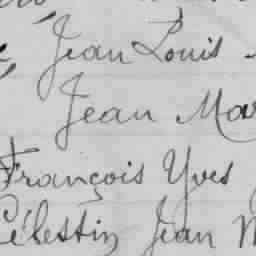 Jean Louis
Jean Mar
François Yves
Célestin Jean M